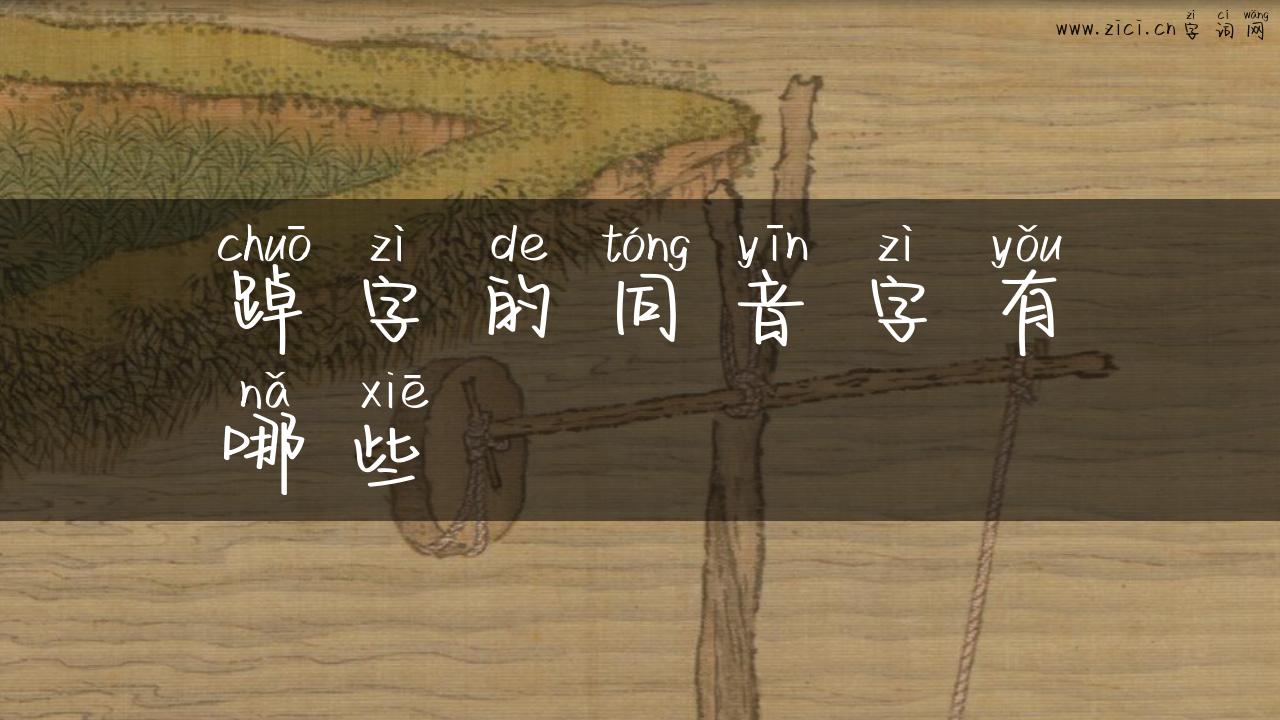 zì cí wǎng
www.zici.cn 字词网
chuō zì de tóng yīn zì yǒu
踔字的同音字有
nǎ xiē
哪些